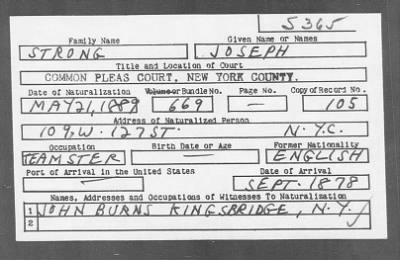 S 365
Family Name Given Name or Names
STRONG JOSEPH
Title and Location of Court
COMMON PLEAS COURT, NEW YORK COUNTY.
Date of Naturalization Volume or Bundle No. Page No. Copy of Record No.
MAY 21, 1889 669 — 105
Address of Naturalized Person
109. W. 127 ST. N.Y.C.
Occupation Birth Date or Age Former Nationality
TEAMSTER — ENGLISH
Port of Arrival in the United States Date of Arrival
— SEPT. 1878
Names, Addresses and Occupations of Witnesses To Naturalization
1 JOHN BURNS KINGSBRIDGE, N.Y.
2